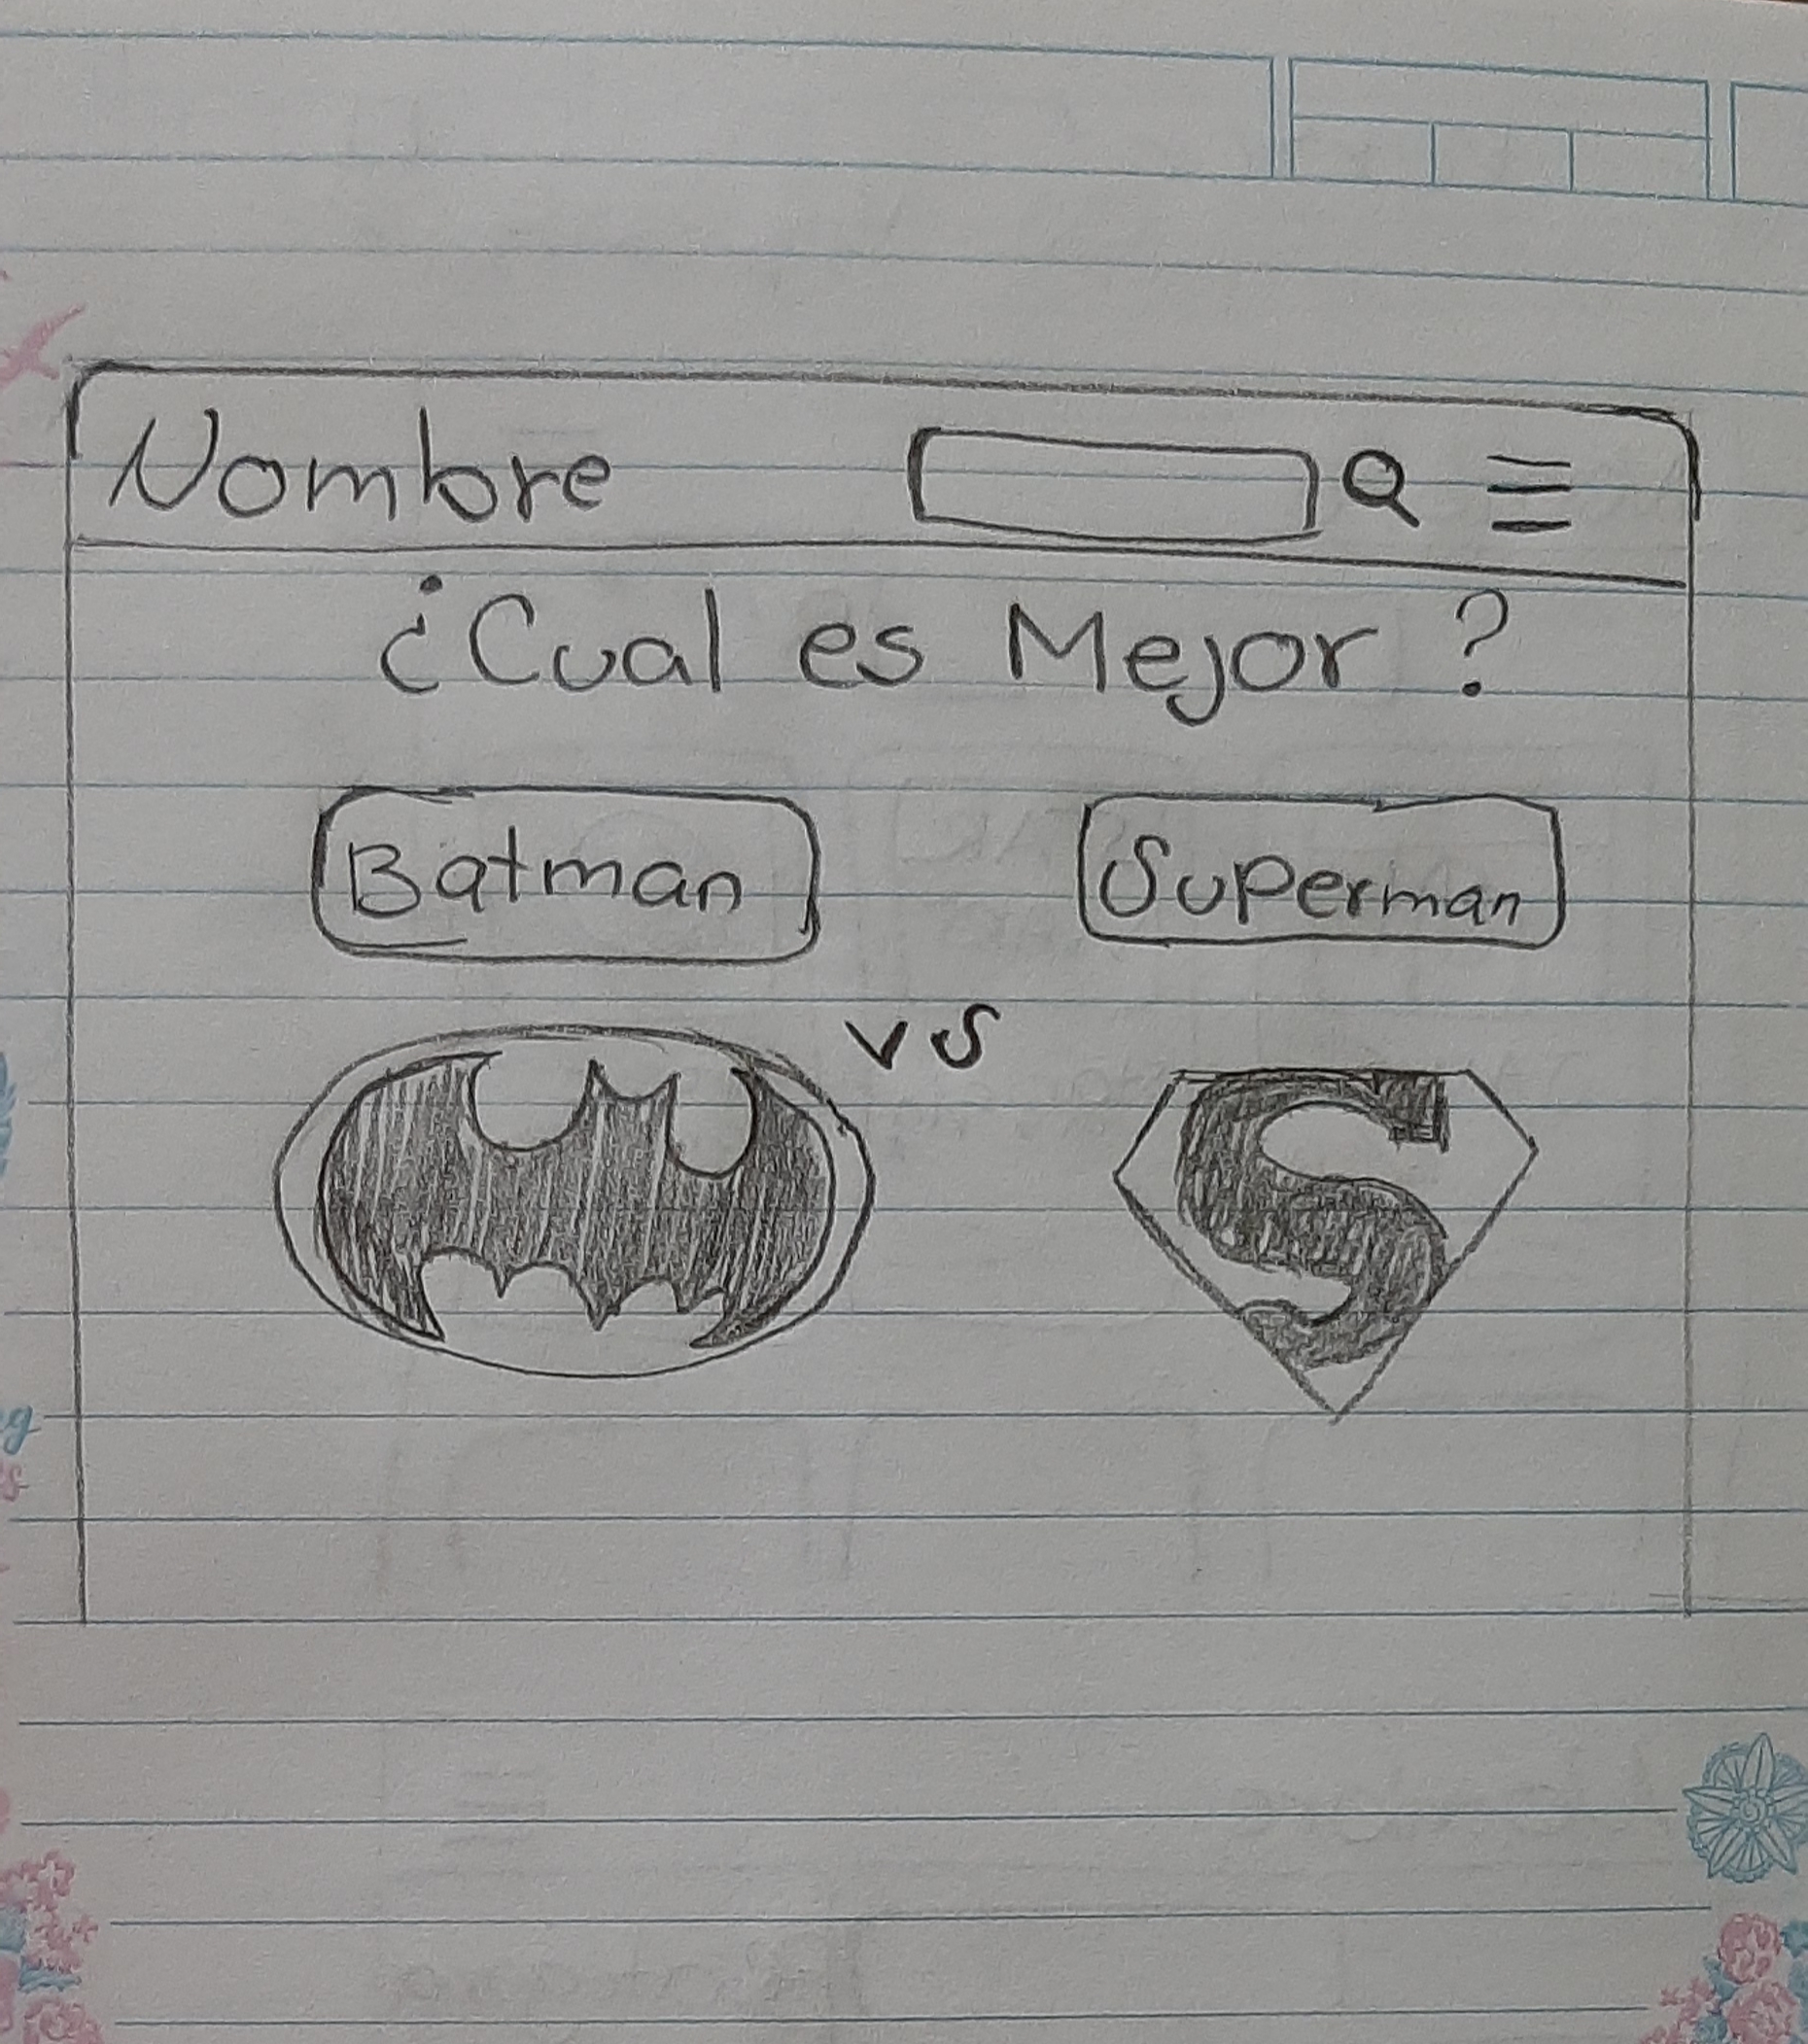 Nombre
¿Cual es Mejor?
Batman
Superman
vs
S